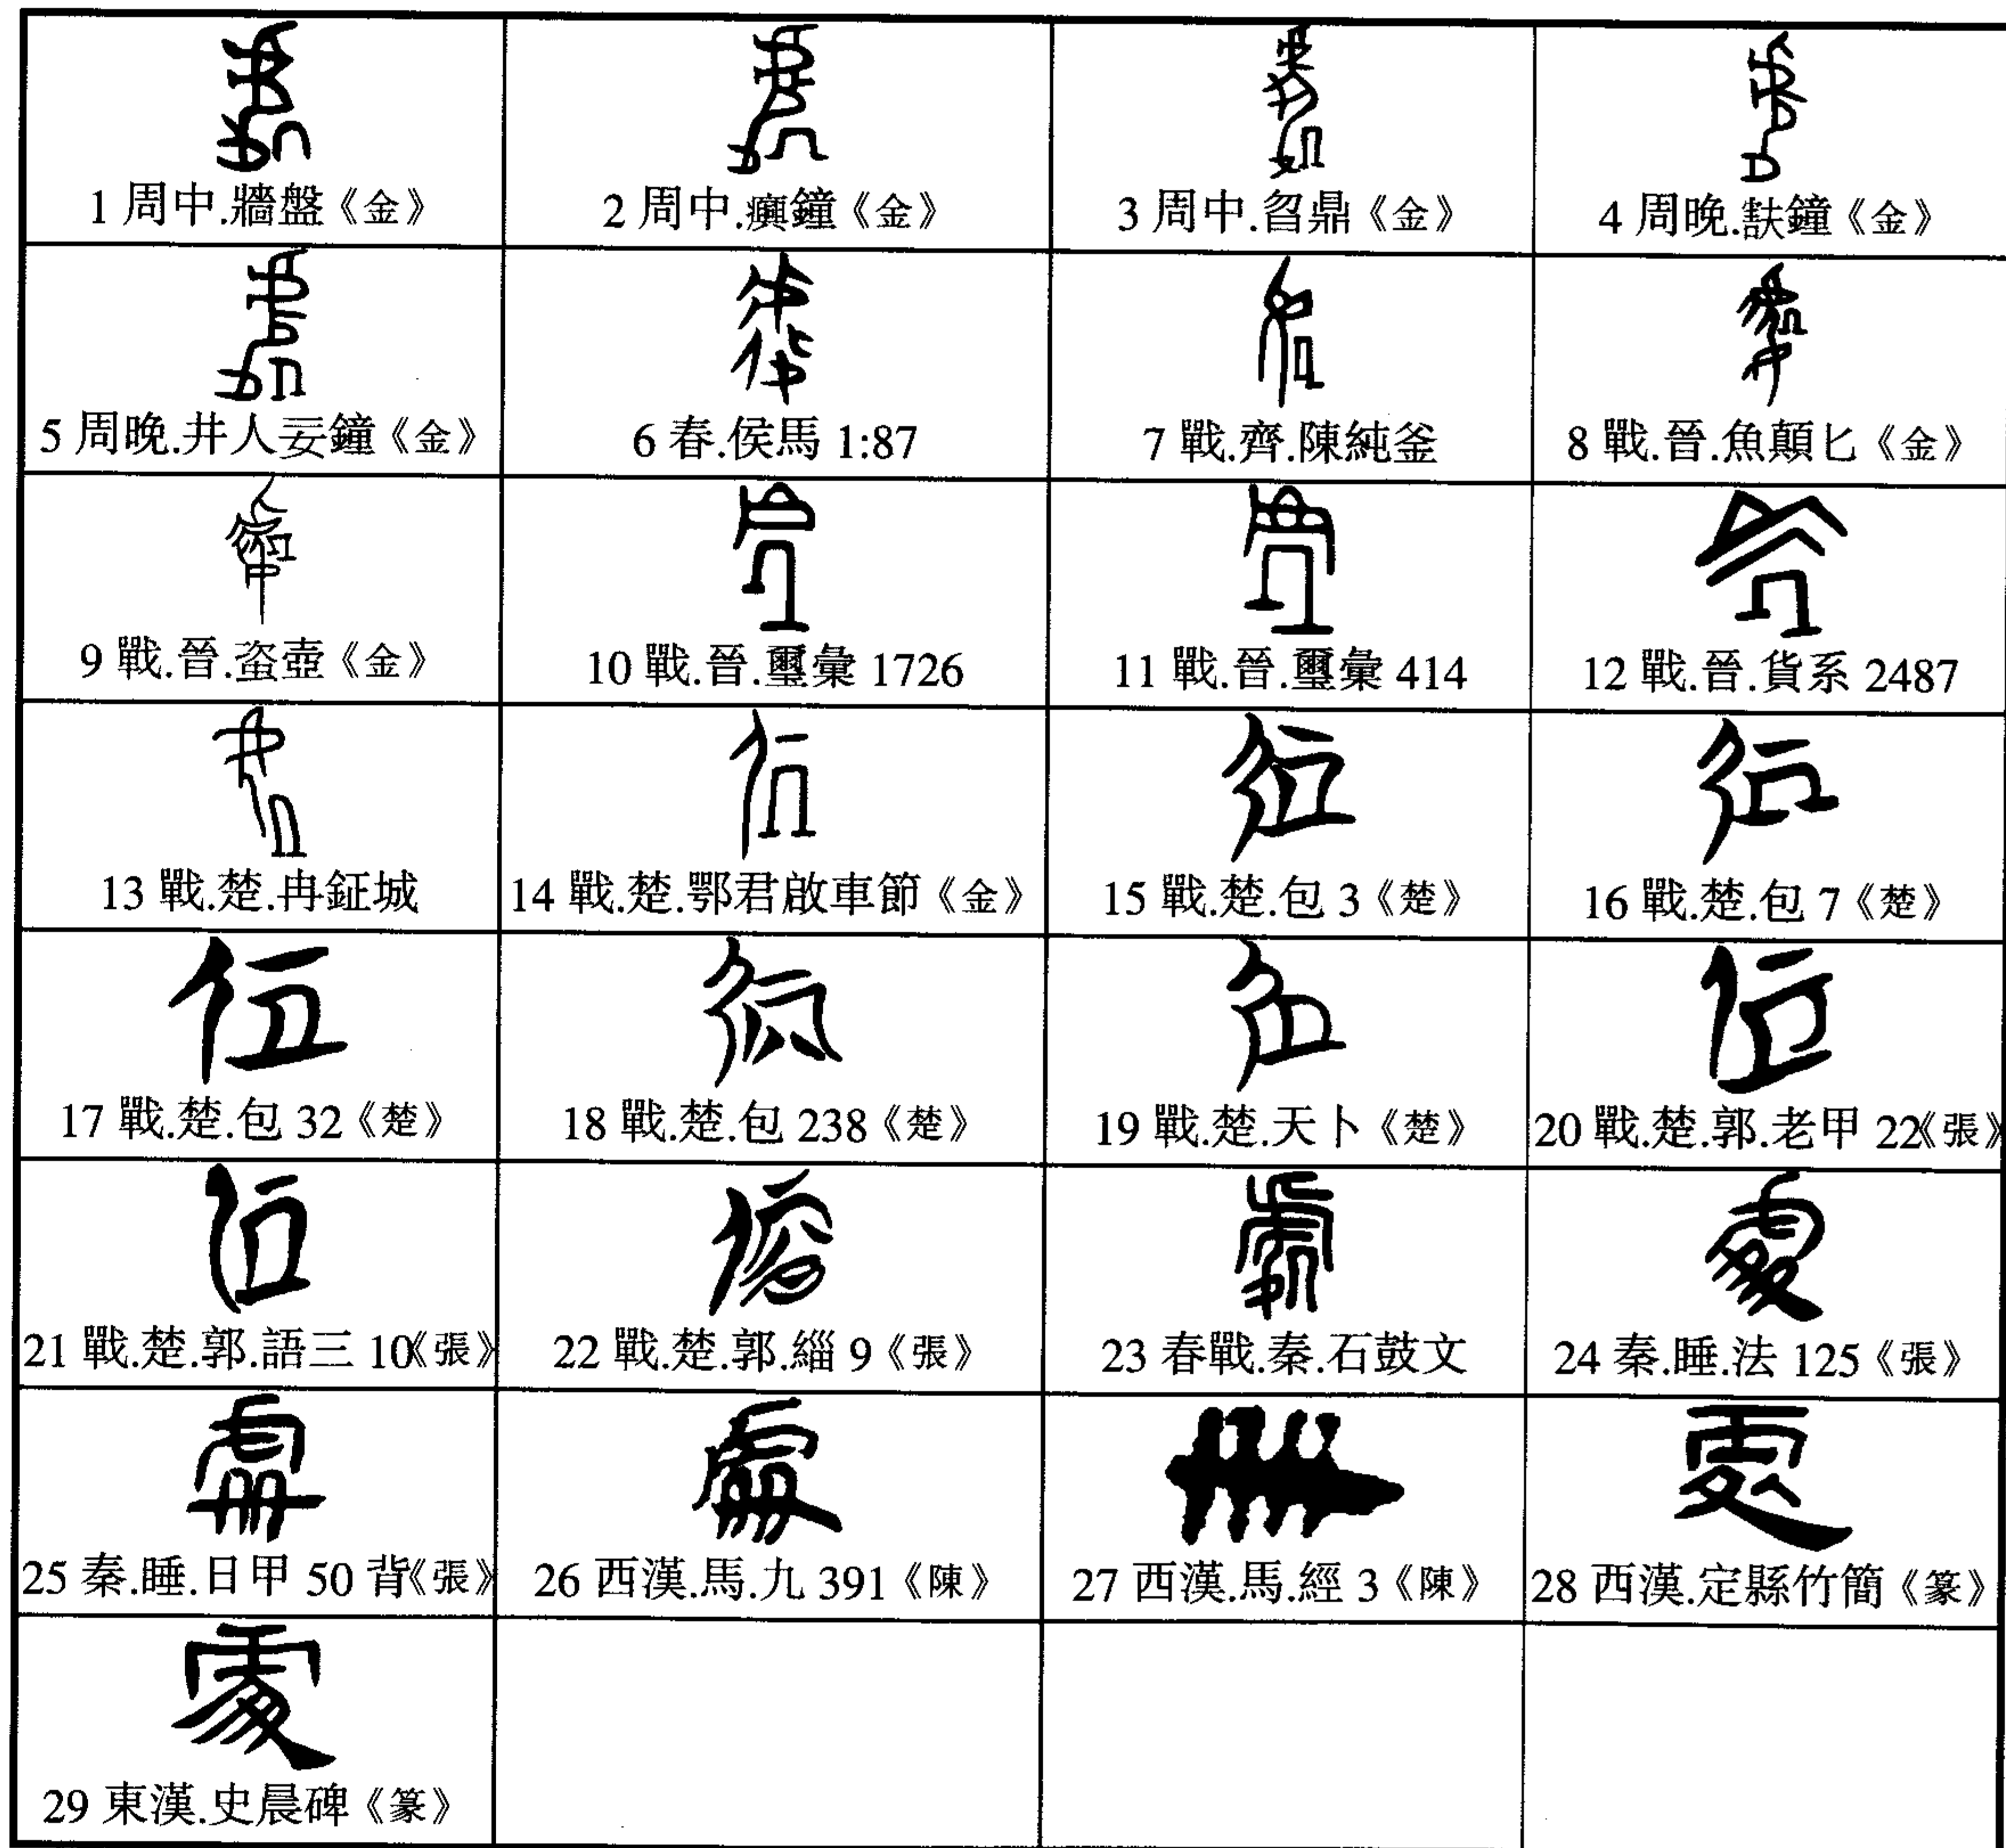 1 周中.牆盤《金》
2 周中.𤼈鐘《金》
3 周中.曶鼎《金》
4 周晚.㝬鐘《金》
5 周晚.井人妄鐘《金》
6 春.侯馬 1:87
7 戰.齊.陳純釜
8 戰.晉.魚顛匕《金》
9 戰.晉.𧊒壺《金》
10 戰.晉.璽彙 1726
11 戰.晉.璽彙 414
12 戰.晉.貨系 2487
13 戰.楚.冉鉦城
14 戰.楚.鄂君啟車節《金》
15 戰.楚.包 3《楚》
16 戰.楚.包 7《楚》
17 戰.楚.包 32《楚》
18 戰.楚.包 238《楚》
19 戰.楚.天卜《楚》
20 戰.楚.郭.老甲 22《張》
21 戰.楚.郭.語三 10《張》
22 戰.楚.郭.緇 9《張》
23 春戰.秦.石鼓文
24 秦.睡.法 125《張》
25 秦.睡.日甲 50 背《張》
26 西漢.馬.九 391《陳》
27 西漢.馬.經 3《陳》
28 西漢.定縣竹簡《篆》
29 東漢.史晨碑《篆》